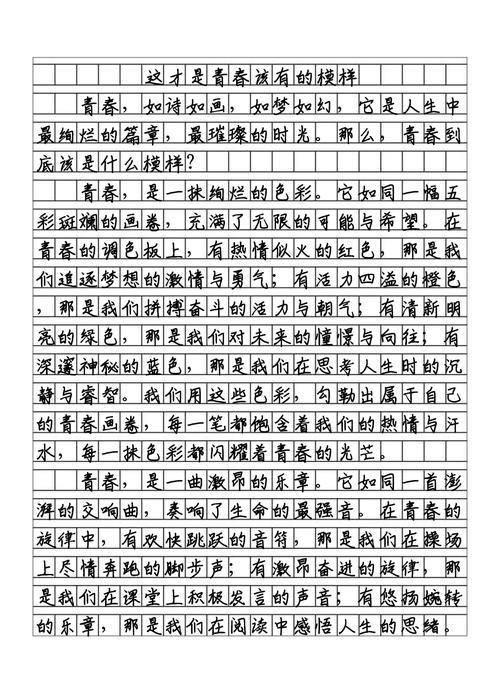 这才是青春该有的模样
青春，如诗如画，如梦如幻，它是人生中
最绚烂的篇章，最璀璨的时光。那么，青春到
底该是什么模样？
青春，是一抹绚烂的色彩。它如同一幅五
彩斑斓的画卷，充满了无限的可能与希望。在
青春的调色板上，有热情似火的红色，那是我
们追逐梦想的激情与勇气；有活力四溢的橙色
，那是我们拼搏奋斗的活力与朝气；有清新明
亮的绿色，那是我们对未来的憧憬与向往；有
深邃神秘的蓝色，那是我们在思考人生时的沉
静与睿智。我们用这些色彩，勾勒出属于自己
的青春画卷，每一笔都饱含着我们的热情与汗
水，每一抹色彩都闪耀着青春的光芒。
青春，是一曲激昂的乐章。它如同一首澎
湃的交响曲，奏响了生命的最强音。在青春的
旋律中，有欢快跳跃的音符，那是我们在操场
上尽情奔跑的脚步声；有激昂奋进的旋律，那
是我们在课堂上积极发言的声音；有悠扬婉转
的乐章，那是我们在阅读中感悟人生的思绪。